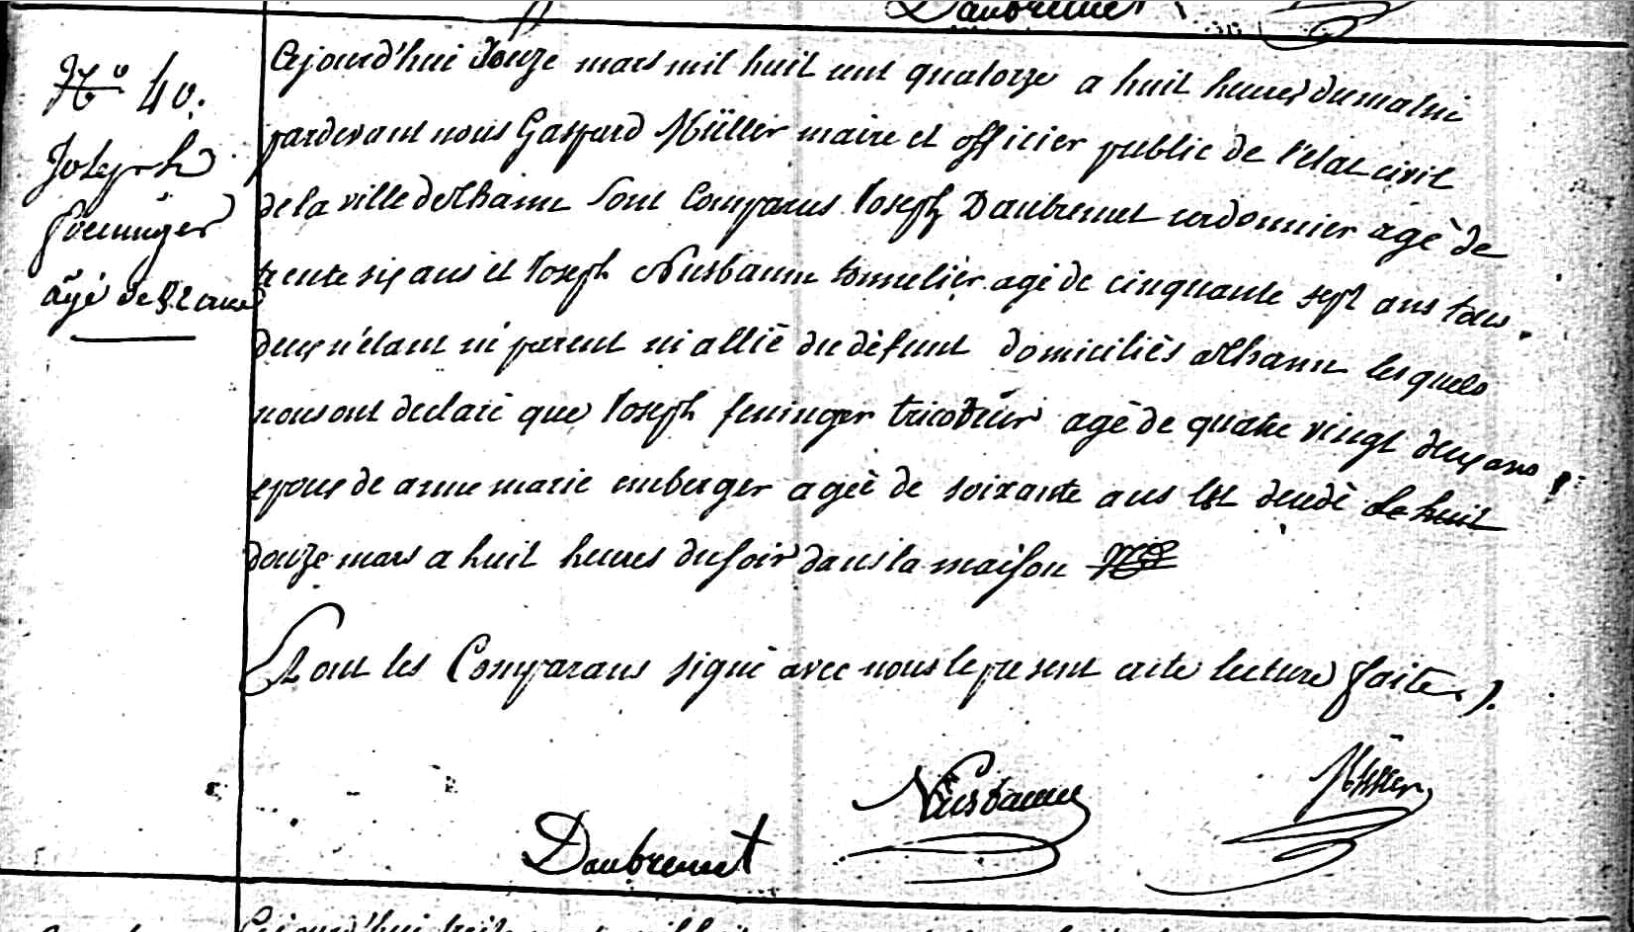 Daubremet
N° 40.
Joseph
foeninger
agé de 82 ans
Cejourd'hui douze mars mil huit cent quatorze a huit heures du matin
pardevant nous Gaspard Müller maire et officier public de l'état civil
de la ville de thann Sont Comparus Joseph Daubremet cordonnier agé de
trente six ans et Joseph Nusbaum tonnelier agé de cinquante sept ans tous
deux n'étant ni parent ni allié du défunt domiciliés a thann lesquels
nous ont declaré que Joseph feninger tricoteur agé de quatre vingt deux ans
epoux de anne marie emberger agée de soixante ans Est decedé le huit
douze mars a huit heures du soir dans la maison N°
Et ont les Comparans signé avec nous le present acte lecture faite).
Nusbaum
Müller
Daubremet
Cejourd'hui